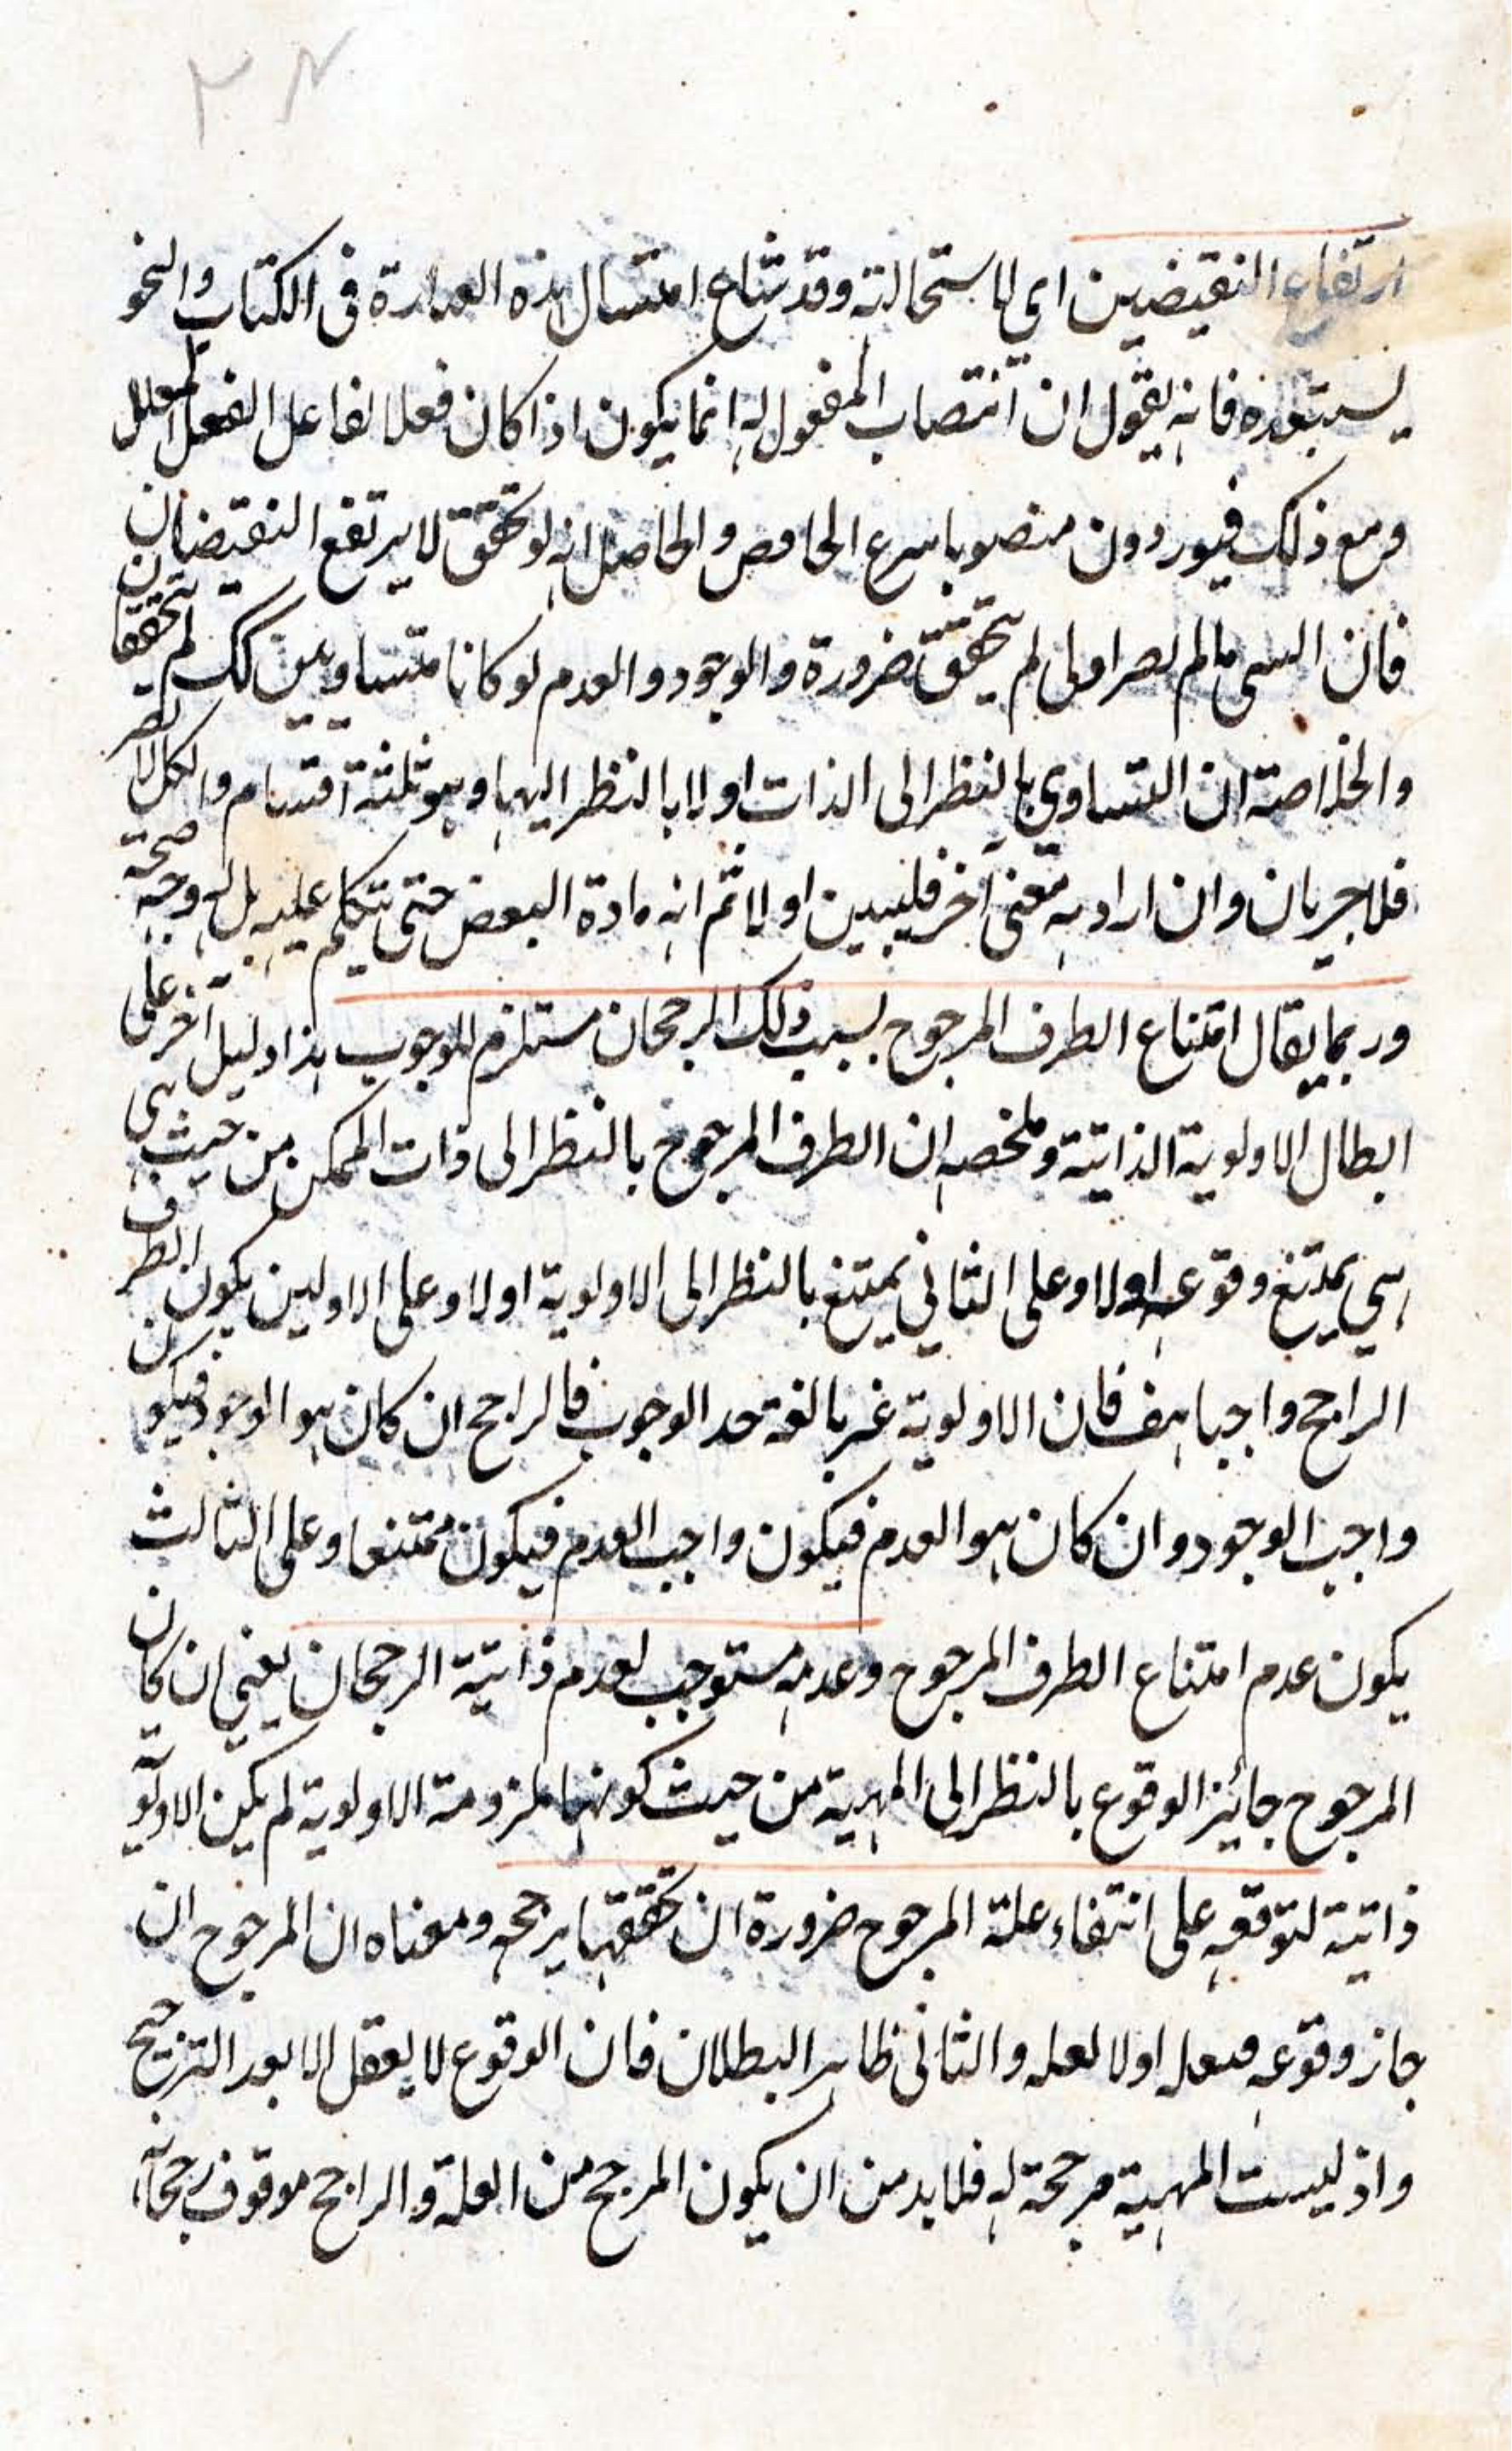 ارتفاع النقيضين اي لاستحالته وقد شاع امتثال هذه العبارة في الكتاب والنحو
يستبعده فانه يقول ان انتصاب المفعول له انما يكون اذا كان فعلا لفاعل الفعل المعلل
ومع ذلك فيوردون منصوبا والحاصل انه لو تحقق لا يرتفع النقيضان
فان الشي مالم يصر اولى لم يتحقق ضرورة والوجود والعدم لو كانا متساويين كك لم يتحققان
والخلاصة ان التساوي بالنظر الى الذات او لا بالنظر اليهما وهو ثلثة اقسام والكل لا يصر
فلا جريان وان اراد به معنى آخر فليبين اولا ثم انه مادة البعض حتى نتكلم عليه بل له وجه صحة
وربما يقال امتناع الطرف المرجوح بسبب ذلك الرجحان مستلزم للوجوب هذا دليل آخر على
ابطال الاولوية الذاتية وملخصه ان الطرف المرجوح بالنظر الى ذات الممكن من حيث هي
هي يمتنع وقوعه اولا وعلى الثاني يمتنع بالنظر الى الاولوية اولا وعلى الاولين يكون الطرف
الراجح واجبا هف فان الاولوية غير بالغة حد الوجوب فالراجح ان كان هو الوجود فيكون
واجب الوجود وان كان هو العدم فيكون واجب العدم فيكون ممتنعا وعلى الثالث
يكون عدم امتناع الطرف المرجوح وعدمه مستوجب لعدم ذاتية الرجحان يعني ان كان
المرجوح جائز الوقوع بالنظر الى المهية من حيث كونها ملزومة الاولوية لم يكن الاولوية
ذاتية لتوقفه على انتفاء علة المرجوح ضرورة ان تحققها يرجحه ومعناه ان المرجوح ان
جاز وقوعه فبعلة او لا لعلة والثاني ظاهر البطلان فان الوقوع لا يعقل الا بعد الترجيح
واذ ليست المهية مرجحة له فلا بد من ان يكون المرجح من العلة والراجح موقوف رجحانه